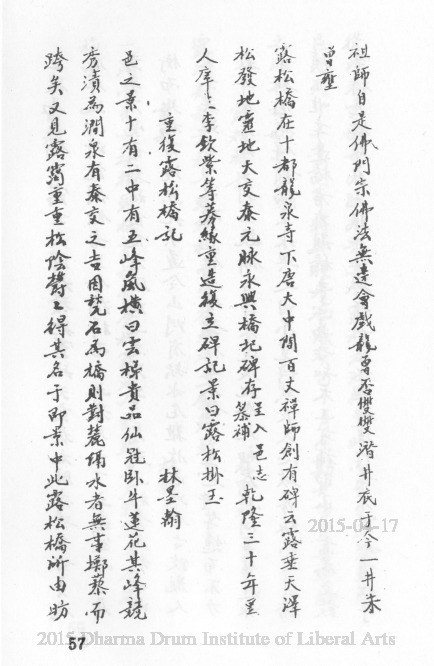 祖師自是佛門宗佛法無邊會戲龍曾否雙雙潛井底于今一井朱
曾壅
露松橋在十都龍泉寺下唐大中間百丈禪師創有碑云露垂天澤
松發地靈地天交泰元脉永興橋圯碑存呈入邑志乾隆三十年里
纂補
人庠士李欽榮等募緣重造復立碑記景曰露松掛玉
重復露松橋記
林墨翰
邑之景十有二中有五峰風橫曰雲梯貴品仙冠卧牛蓮花其峰競
秀瀆為澗泉有泰交之吉因甃石為橋則對麓隔水者無事擲藜而
跨矣又見露靄重重松陰欝欝得其名于即景中此露松橋所由昉
2015-04-17
2015 Dharma Drum Institute of Liberal Arts
57